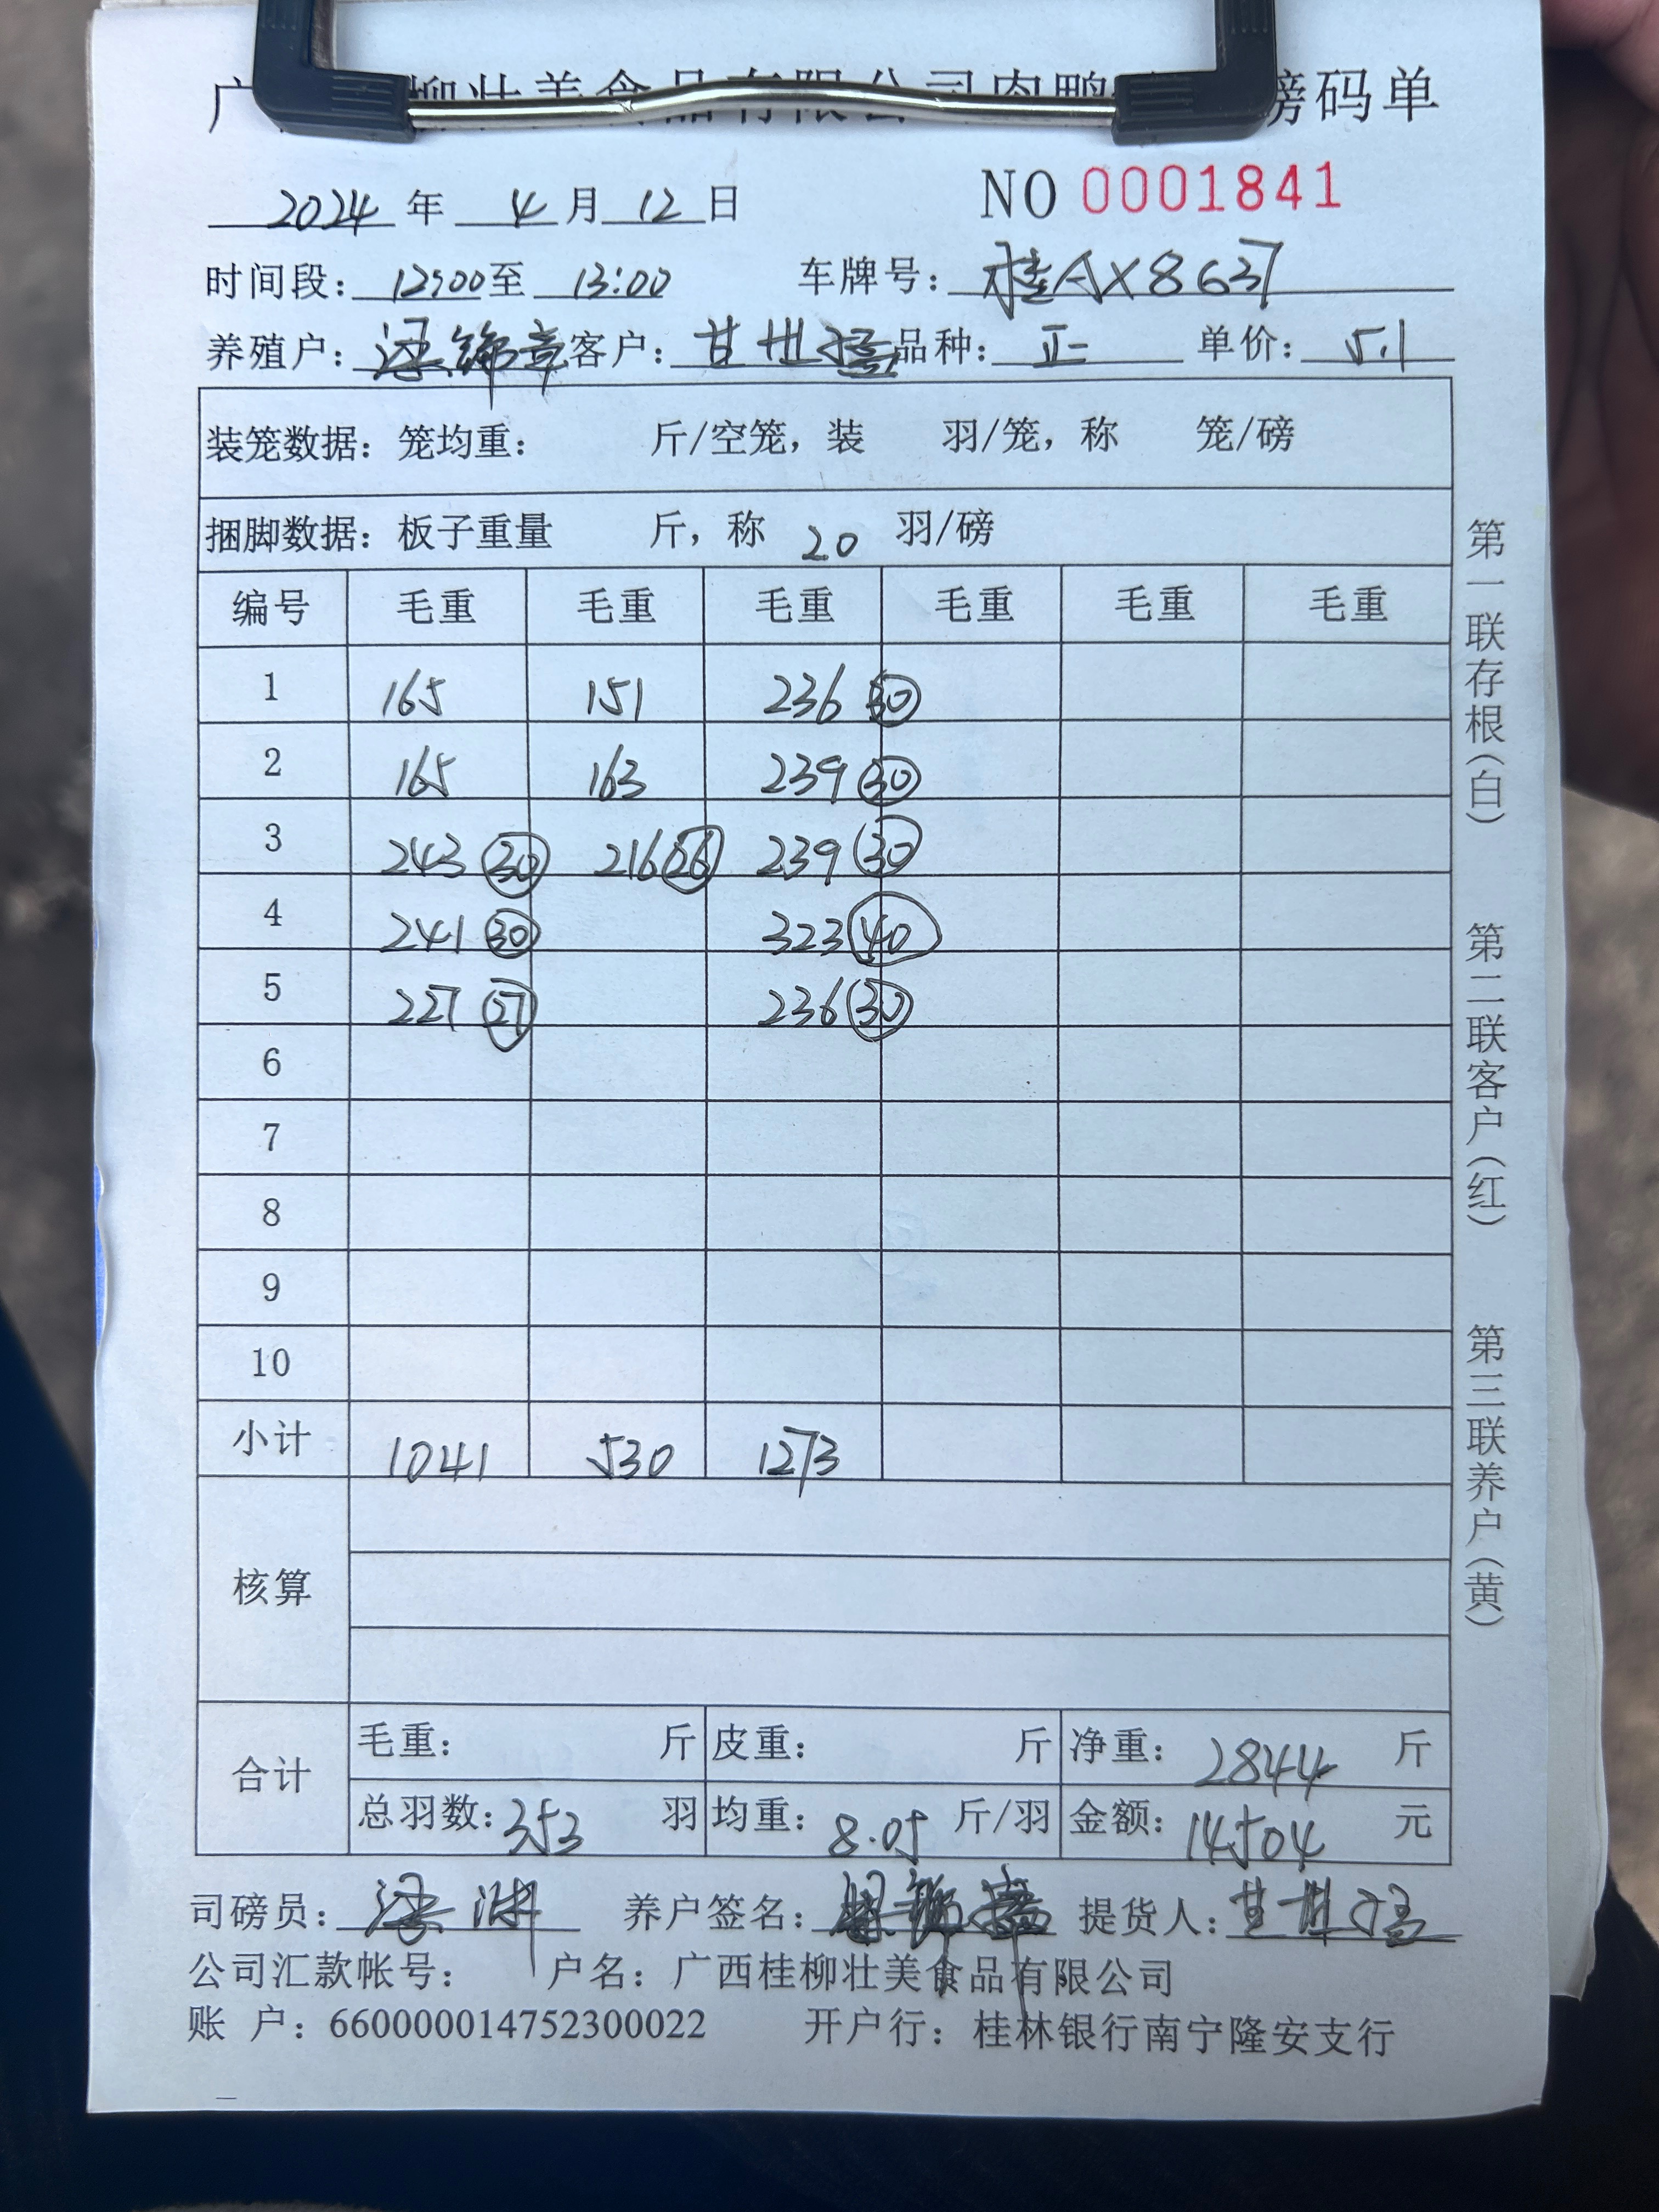 广 柳壮美食品有限公司肉鸭 磅码单
2024年 4月12日 NO 0001841
时间段：12:00至 13:00 车牌号：桂AX8637
养殖户：梁锦章 客户：甘世 品种：正 单价：5.1
装笼数据：笼均重： 斤/空笼，装 羽/笼，称 笼/磅
捆脚数据：板子重量 斤，称 20 羽/磅
编号 毛重 毛重 毛重 毛重 毛重 毛重
1 165 151 236 30
2 165 163 239 30
3 243 30 216 26 239 30
4 241 30 323 40
5 227 27 236 30
6
7
8
9
10
小计 1041 530 1273
核算
合计
毛重： 斤 皮重： 斤 净重：2844 斤
总羽数：353 羽 均重：8.05 斤/羽 金额：14504 元
司磅员：梁 养户签名： 提货人：甘世
公司汇款帐号： 户名：广西桂柳壮美食品有限公司
账 户：660000014752300022 开户行：桂林银行南宁隆安支行
第一联存根（白） 第二联客户（红） 第三联养户（黄）